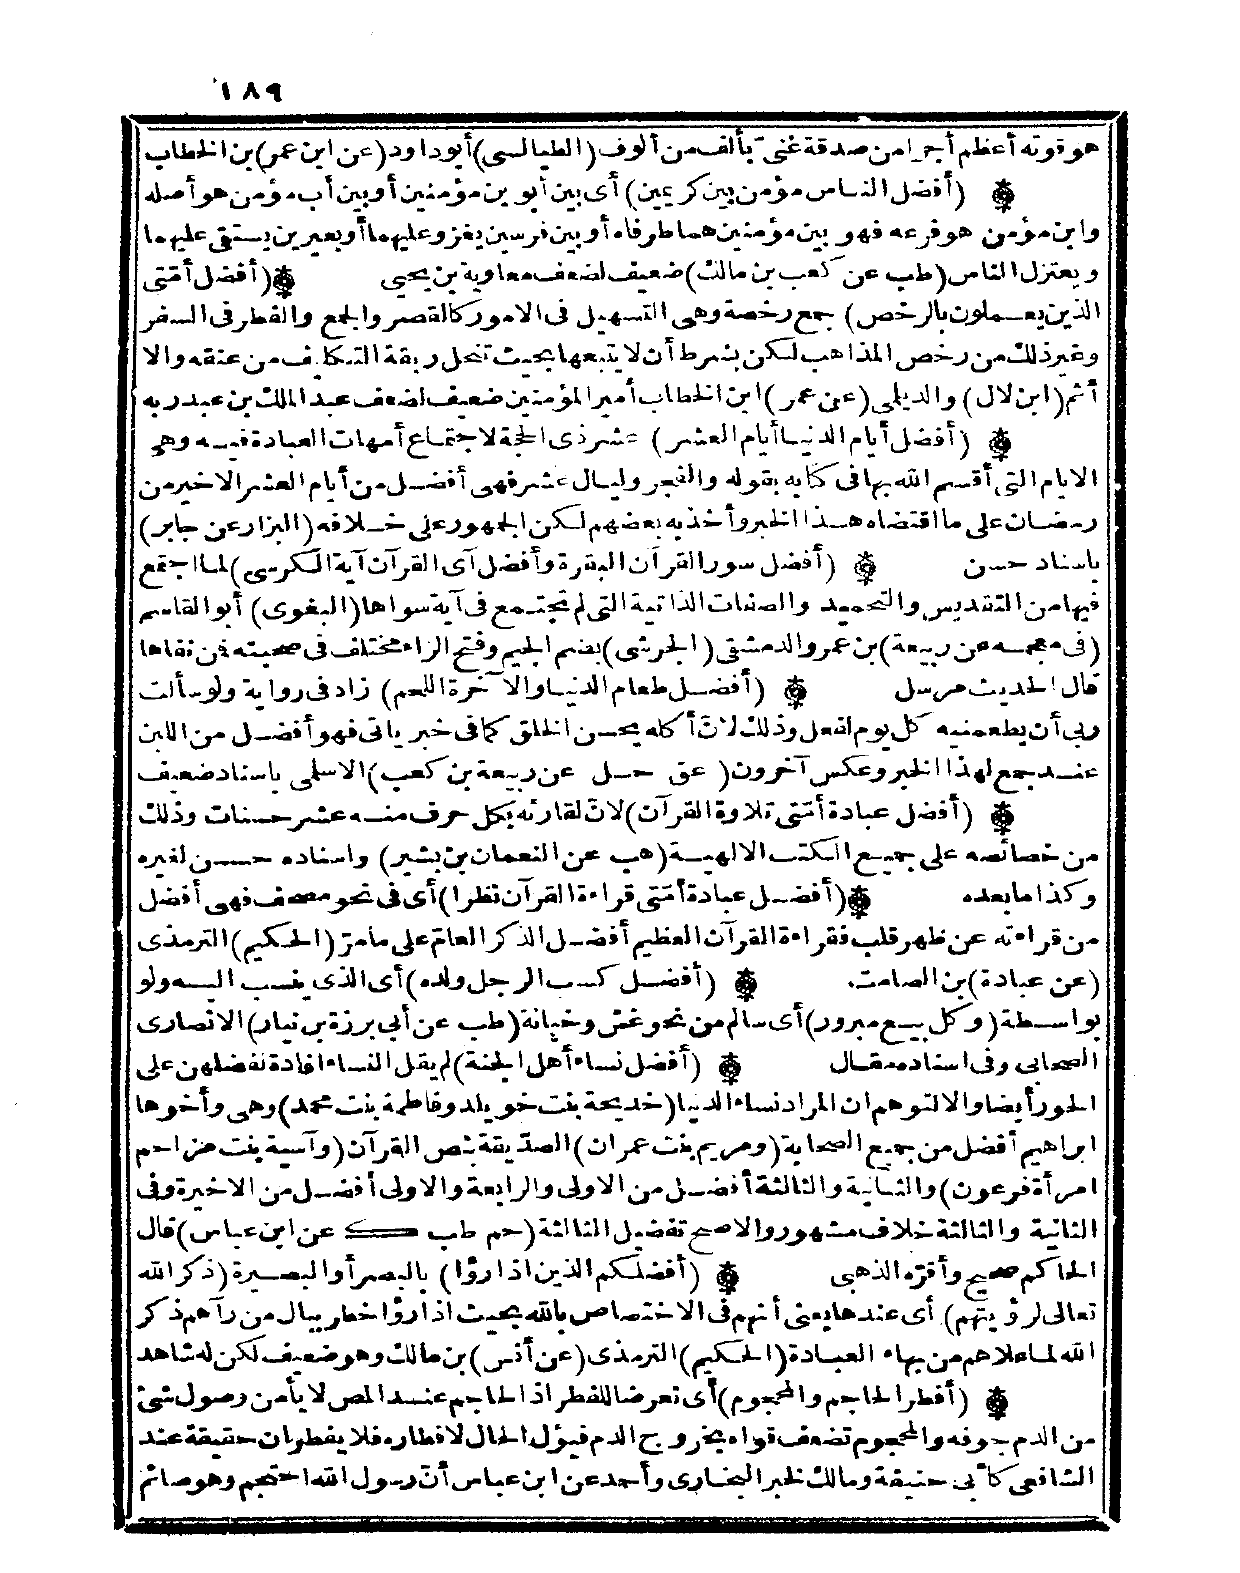 ١٨٩
هو قوته أعظم أجرا من صدقة غنيّ بألف من ألوف (الطيالسي) أبو داود (عن ابن عمر) بن الخطاب
(أفضل الناس مؤمن بين كريمين) أى بين أبوين مؤمنين أو بين أب مؤمن هو أصله
وابن مؤمن هو فرعه فهو بين مؤمنين هما طرفاه أو بين فرسين يغزو عليهما أو بعيرين يستقى عليهما
ويعتزل الناس (طب عن كعب بن مالك) ضعيف لضعف معاوية بن يحيى (أفضل أمّتى
الذين يعملون بالرخص) جمع رخصة وهى التسهيل فى الامور كالقصر والجمع والفطر فى السفر
وغير ذلك من رخص المذاهب لكن بشرط أن لا يتبعها بحيث تنحل ربقة التكليف من عنقه والا
أثم (ابن لال) والديلى (عن عمر) ابن الخطاب أمير المؤمنين ضعيف لضعف عبد الملك بن عبد ربه
(أفضل أيام الدنيا أيام العشر) عشر ذى الحجة لاجتماع أمهات العبادة فيه وهى
الايام التى أقسم الله بها فى كتابه بقوله والفجر وليال عشر فهى أفضل من أيام العشر الاخير من
رمضان على ما اقتضاه هذا الخبر وأخذ به بعضهم لكن الجمهور على خلافه (البزار عن جابر)
باسناد حسن (أفضل سور القرآن البقرة وأفضل آى القرآن آية الكرسى) لما اجتمع
فيها من التقديس والتحميد والصفات الذاتية التى لم تجتمع فى آية سواها (البغوى) أبو القاسم
(فى معجمه عن ربيعة) بن عمرو الدمشقى (الجرشى) بضم الجيم وفتح الراء مختلف فى صحبته فمن نفاها
قال الحديث مرسل (أفضل طعام الدنيا والآخرة اللحم) زاد فى رواية ولو سألت
ربى أن يطعمنيه كل يوم لفعل وذلك لانّ أكله يحسن الخلق كما فى خبر يأتى فهو أفضل من اللبن
عند جمع لهذا الخبر وعكس آخرون (عق حل عن ربيعة بن كعب) الاسلمى باسناد ضعيف
(أفضل عبادة أمّتى تلاوة القرآن) لانّ لقارئه بكل حرف منه عشر حسنات وذلك
من خصائصه على جميع الكتب الالهية (هب عن النعمان بن بشير) واسناده حسن لغيره
وكذا ما بعده (أفضل عبادة أمّتى قراءة القرآن نظرا) أى فى نحو مصحف فهى أفضل
من قراءته عن ظهر قلب فقراءة القرآن العظيم أفضل الذكر العامّ على ما مرّ (الحكيم) الترمذى
(عن عبادة) بن الصامت (أفضل كسب الرجل ولده) أى الذى ينسب اليه ولو
بواسطة (وكل بيع مبرور) أى سالم من نحو غش وخيانة (طب عن أبى برزة بن نيار) الانصارى
الصحابى وفى اسناده مقال (أفضل نساء أهل الجنة) لم يقل النساء افادة لفضلهن على
الحور أيضا والا لتوهم ان المراد نساء الدنيا (خديجة بنت خويلد وفاطمة بنت محمد) وهى وأخوها
ابراهيم أفضل من جميع الصحابة (ومريم بنت عمران) الصدّيقة بنص القرآن (وآسية بنت مزاحم
امرأة فرعون) والثانية والثالثة أفضل من الاولى والرابعة والاولى أفضل من الاخيرة وفى
الثانية والثالثة خلاف مشهور والاصح تفضيل الثالثة (حم طب ك عن ابن عباس) قال
الحاكم صحيح وأقرّه الذهبى (أفضلكم الذين اذا رؤا) بالبصر أو البصيرة (ذكر الله
تعالى لرؤيتهم) أى عندها يعنى أنهم فى الاختصاص بالله بحيث اذا رؤا خطر ببال من رآهم ذكر
الله لما علاهم من بهاء العبادة (الحكيم) الترمذى (عن أنس) بن مالك وهو ضعيف لكن له شاهد
(أفطر الحاجم والمحجوم) أى تعرضا للفطر اذ الحاجم عند المص لا يأمن وصول شئ
من الدم جوفه والمحجوم تضعف قواه بخروج الدم فيؤل الحال لافطاره فلا يفطران حقيقة عند
الشافعى كأبى حنيفة ومالك لخبر البخارى وأحمد عن ابن عباس أنّ رسول الله احتجم وهو صائم